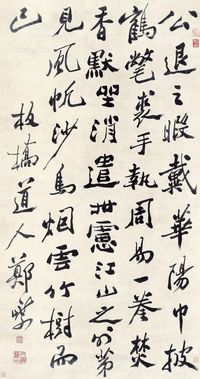 公退之暇戴華陽巾披
鶴氅裘手執周易一卷焚
香默坐消遣世慮江山之外第
見風帆沙鳥烟雲竹樹而
已
板橋道人鄭燮